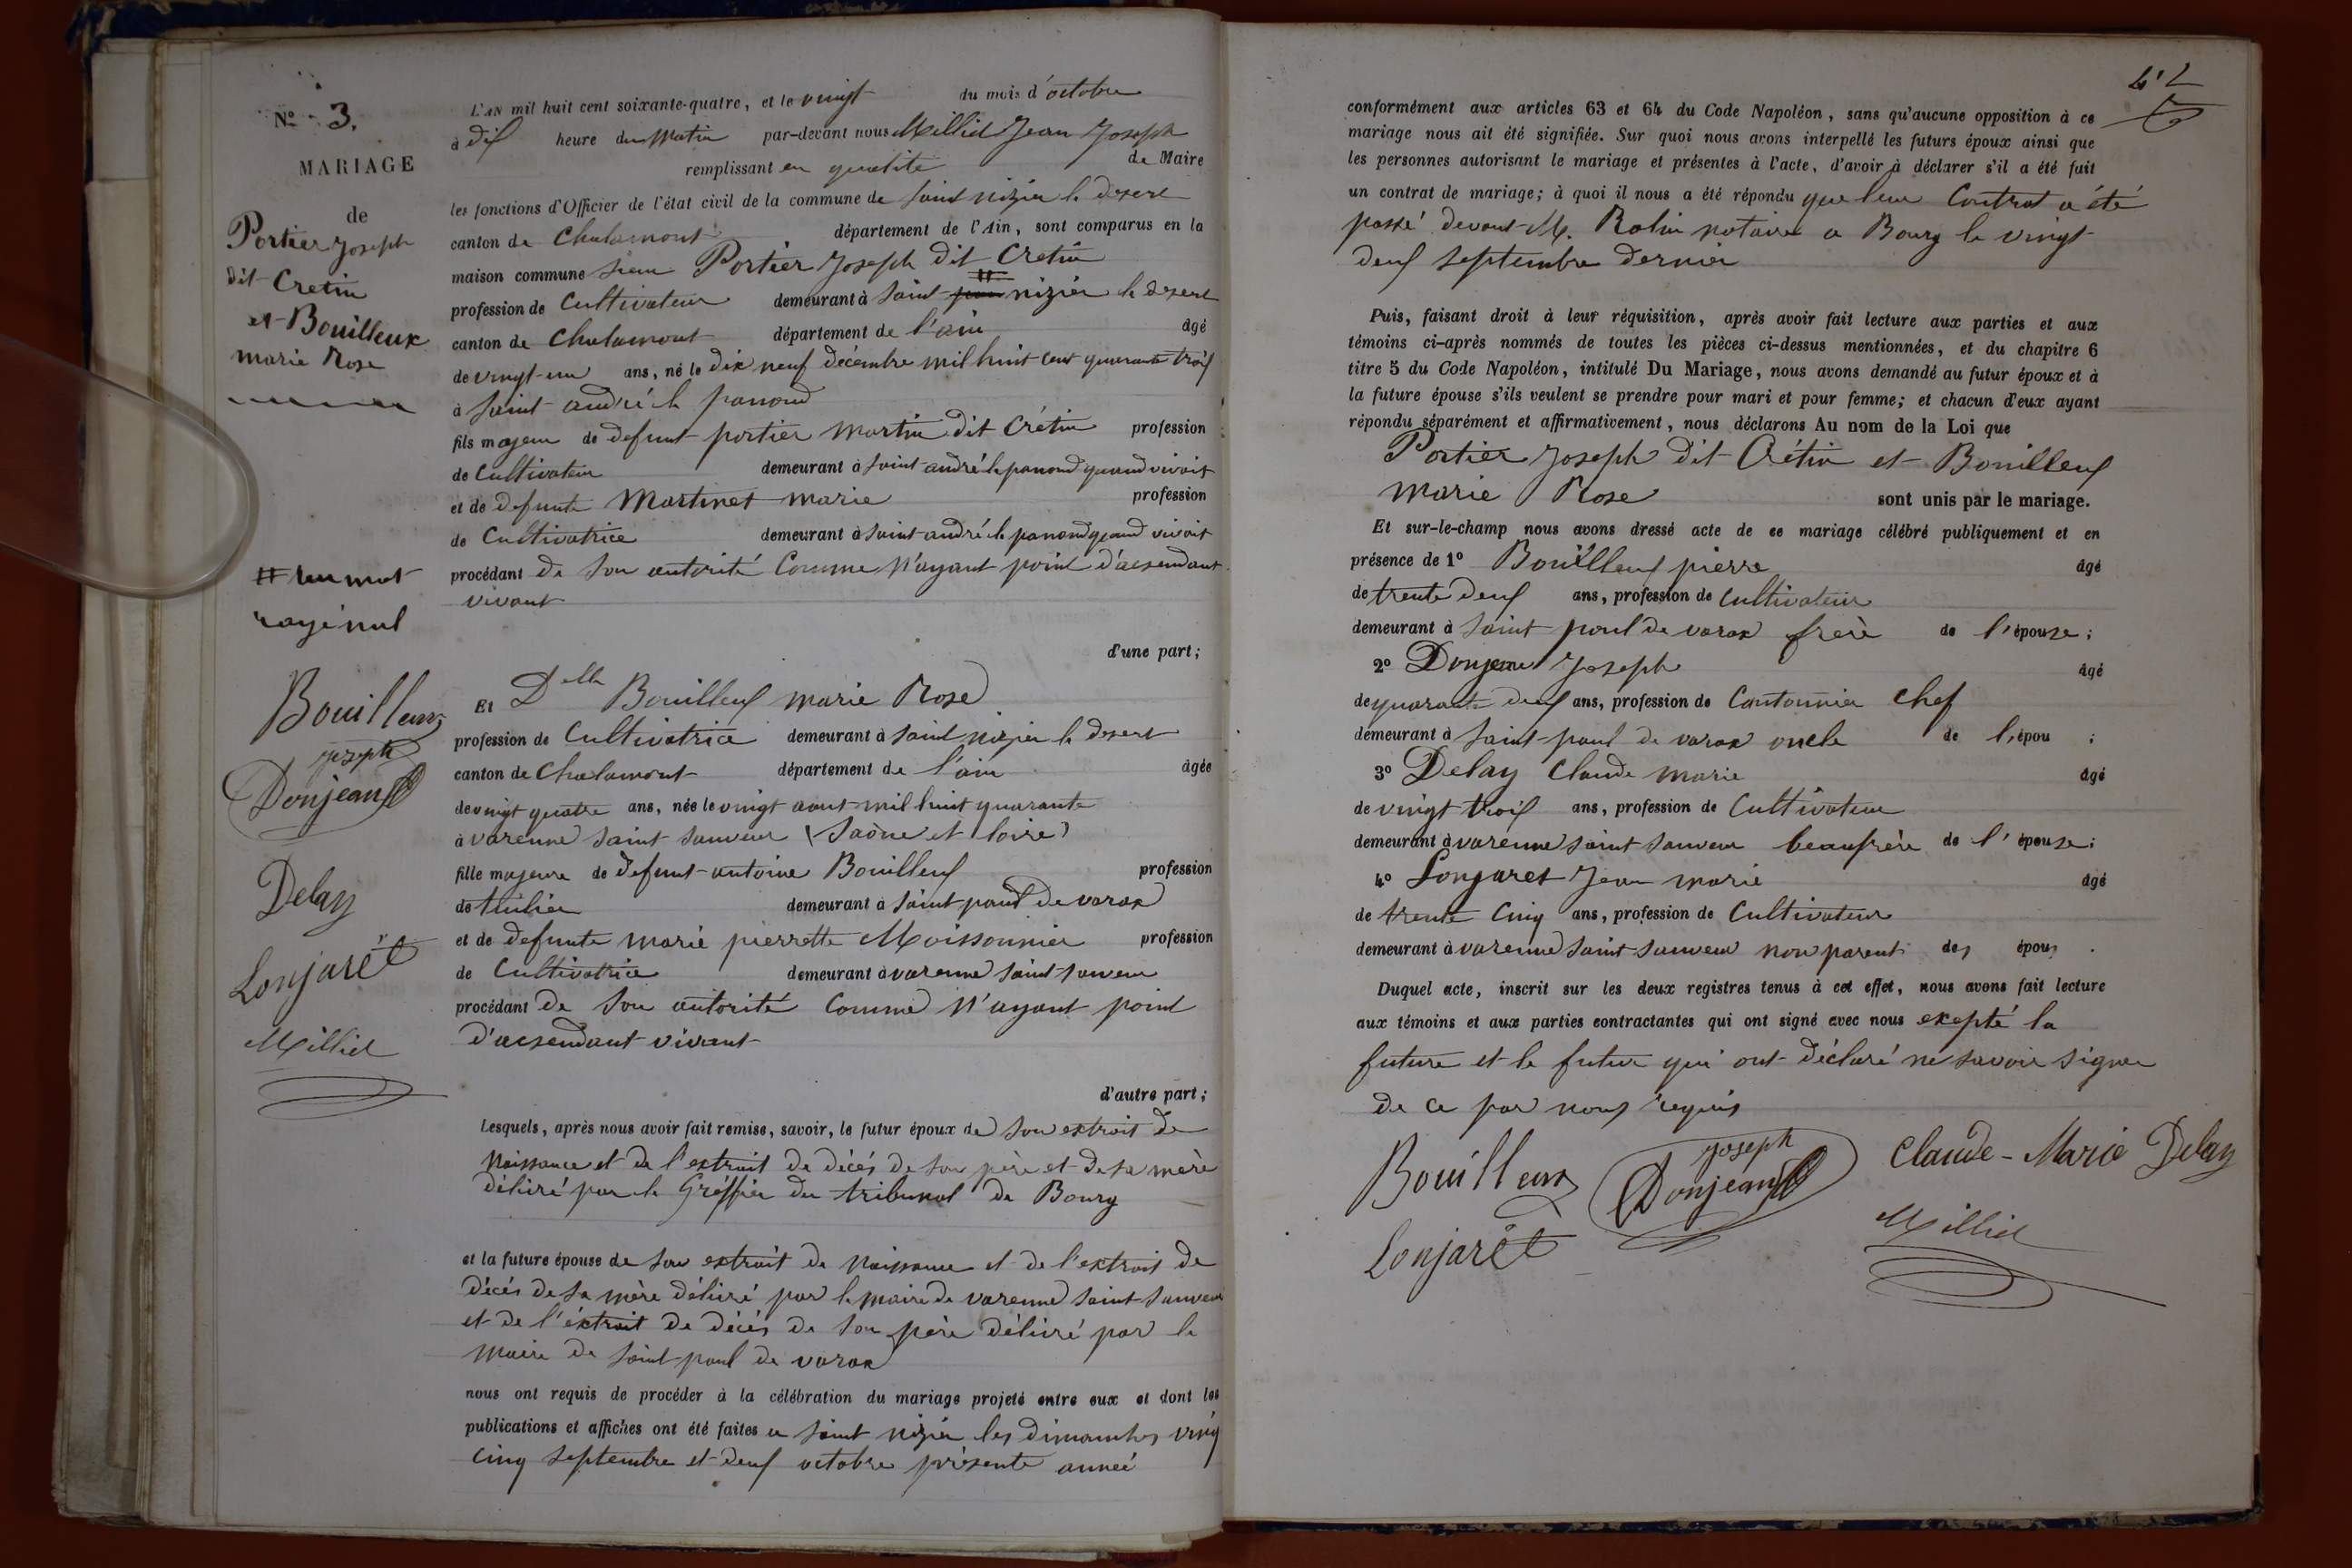 Nº 3.
MARIAGE
de
Portier Joseph
dit Cretin
et Bouilleux
marie Rose
# un mot
rayé nul
Bouilleux
joseph
Donjean
Delay
Lonjaret
Milliet
L'AN mil huit cent soixante-quatre, et le vingt du mois d'octobre
à dix heure du matin par-devant nous Milliet Jean Joseph
remplissant en qualité de Maire
les fonctions d'Officier de l'état civil de la commune de saint nizier le desert
canton de Chalamont département de l'Ain, sont comparus en la
maison commune sieur Portier Joseph dit Cretin
profession de Cultivateur demeurant à saint nizier le desert
canton de Chalamont département de l'ain âgé
de vingt-un ans, né le dix neuf décembre mil huit cent quarante trois
à saint andré le panoud
fils majeur de defunt portier martin dit Crétin profession
de Cultivateur demeurant à saint andré le panoud quand vivoit
et de defunte Martinet marie profession
de Cultivatrice demeurant à saint andré le panoud quand vivoit
procédant de son autorité Comme n'ayant point d'acsendant
vivant
d'une part;
Et Delle Bouilleux marie Rose
profession de Cultivatrice demeurant à saint nizier le desert
canton de Chalamont département de l'ain âgée
de vingt quatre ans, née le vingt aout mil huit quarante
à varenne saint sauveur (saône et loire)
fille majeure de defunt antoine Bouilleux profession
de tuilier demeurant à saint paul de varax
et de defunte marie pierrette Moissonnier profession
de Cultivatrice demeurant à varenne saint sauveur
procédant de son autorité Comme n'ayant point
d'acsendant vivant
d'autre part;
Lesquels, après nous avoir fait remise, savoir, le futur époux de son extrait de
Naissance et de l'extrait de décés de son père et de sa mère
délivré par le Gréffier du tribunal de Bourg
et la future épouse de son extrait de Naissance et de l'extrait de
décés de sa mère délivré par le maire de varenne saint sauveur
et de l'éxtrait de décés de son père délivré par le
Maire de saint paul de varax
nous ont requis de procéder à la célébration du mariage projeté entre eux et dont les
publications et affiches ont été faites a saint nizier les dimanches ving
cinq septembre et deux octobre présente anneé
conformément aux articles 63 et 64 du Code Napoléon, sans qu'aucune opposition à ce
mariage nous ait été signifiée. Sur quoi nous avons interpellé les futurs époux ainsi que
les personnes autorisant le mariage et présentes à l'acte, d'avoir à déclarer s'il a été fait
un contrat de mariage; à quoi il nous a été répondu que leur Contrat a été
passé devant M. Rolin notaire a Bourg le vingt
deux septembre dernier
Puis, faisant droit à leur réquisition, après avoir fait lecture aux parties et aux
témoins ci-après nommés de toutes les pièces ci-dessus mentionnées, et du chapitre 6
titre 5 du Code Napoléon, intitulé Du Mariage, nous avons demandé au futur époux et à
la future épouse s'ils veulent se prendre pour mari et pour femme; et chacun d'eux ayant
répondu séparément et affirmativement, nous déclarons Au nom de la Loi que
Portier Joseph dit Crétin et Bouilleux
marie Rose sont unis par le mariage.
Et sur-le-champ nous avons dressé acte de ce mariage célébré publiquement et en
présence de 1º Bouilleux pierre âgé
de trente deux ans, profession de Cultivateur
demeurant à saint paul de varax frère de l'épouse;
2º Donjean Joseph âgé
de quarante deux ans, profession de Cantonnier Chef
demeurant à saint paul de varax oncle de l'épou ;
3º Delay Claude marie âgé
de vingt trois ans, profession de Cultivateur
demeurant à varenne saint sauveur beaufrère de l'épouse;
4º Lonjaret Jean marie âgé
de trente cinq ans, profession de Cultivateur
demeurant à varenne saint sauveur non parent des époux.
Duquel acte, inscrit sur les deux registres tenus à cet effet, nous avons fait lecture
aux témoins et aux parties contractantes qui ont signé avec nous exepté la
future et le futur qui ont déclaré ne savoir signer
de ce par nous requis
Bouilleux joseph Donjean Claude-Marie Delay
Lonjaret Milliet